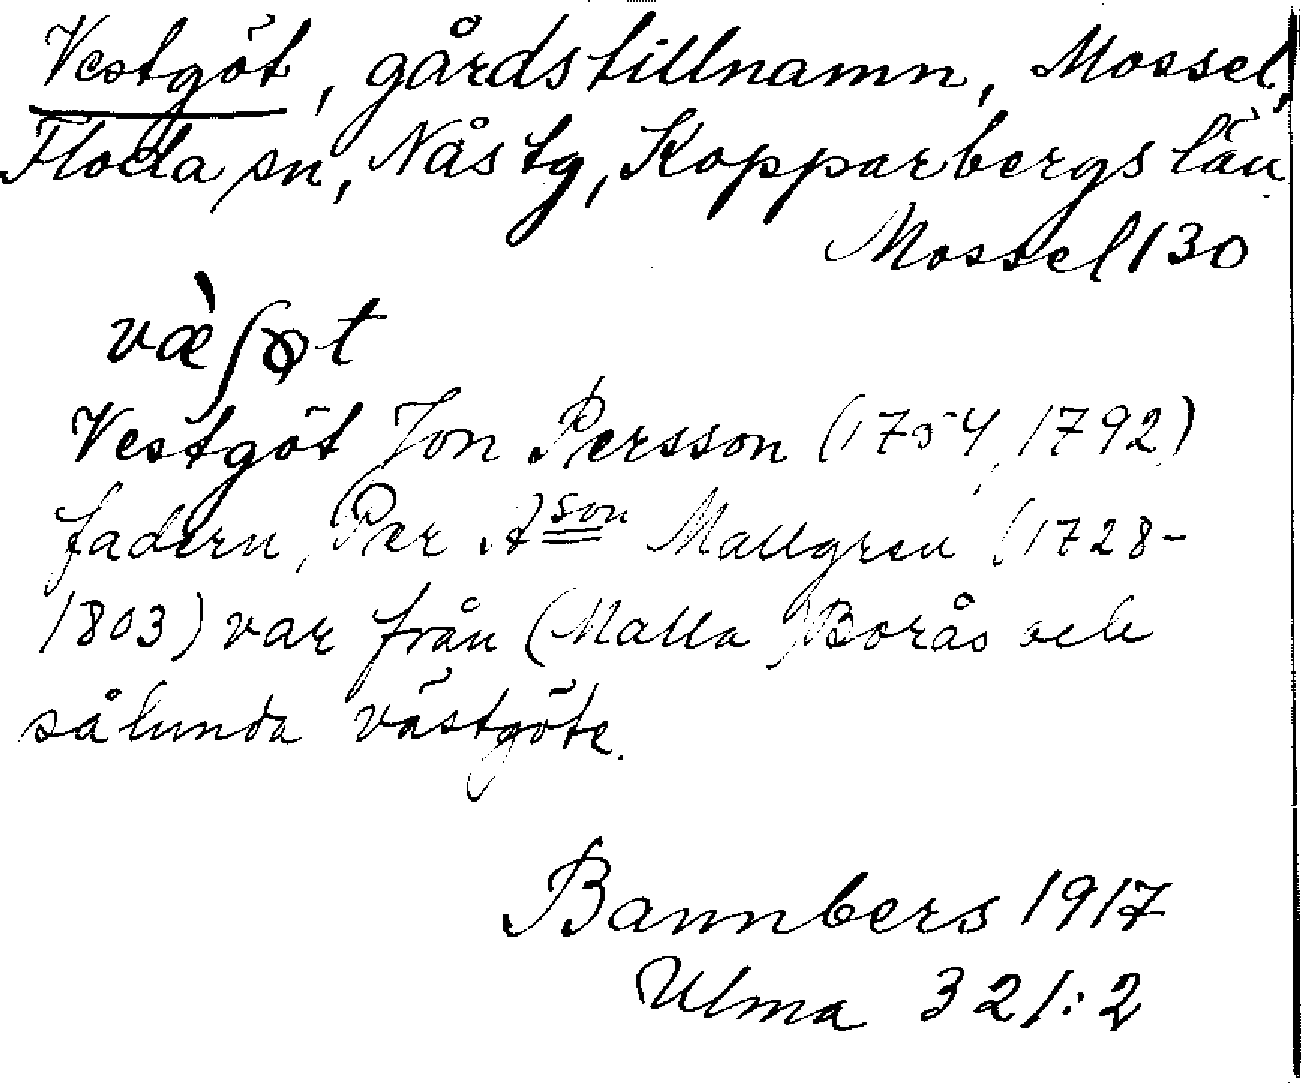 Vestgöt, gårdstillnamn, Mossel,
Floda sn, Nås tg, Kopparbergs län
Mossel 130
væ̀ʃɷt
Vestgöt Jon Persson (1754, 1792)
fadern, (Per Ason Mallgren (1728-
1803) var från (Malla) Borås och
sålunda västgöte.
Bannbers 1917
Ulma 321:2